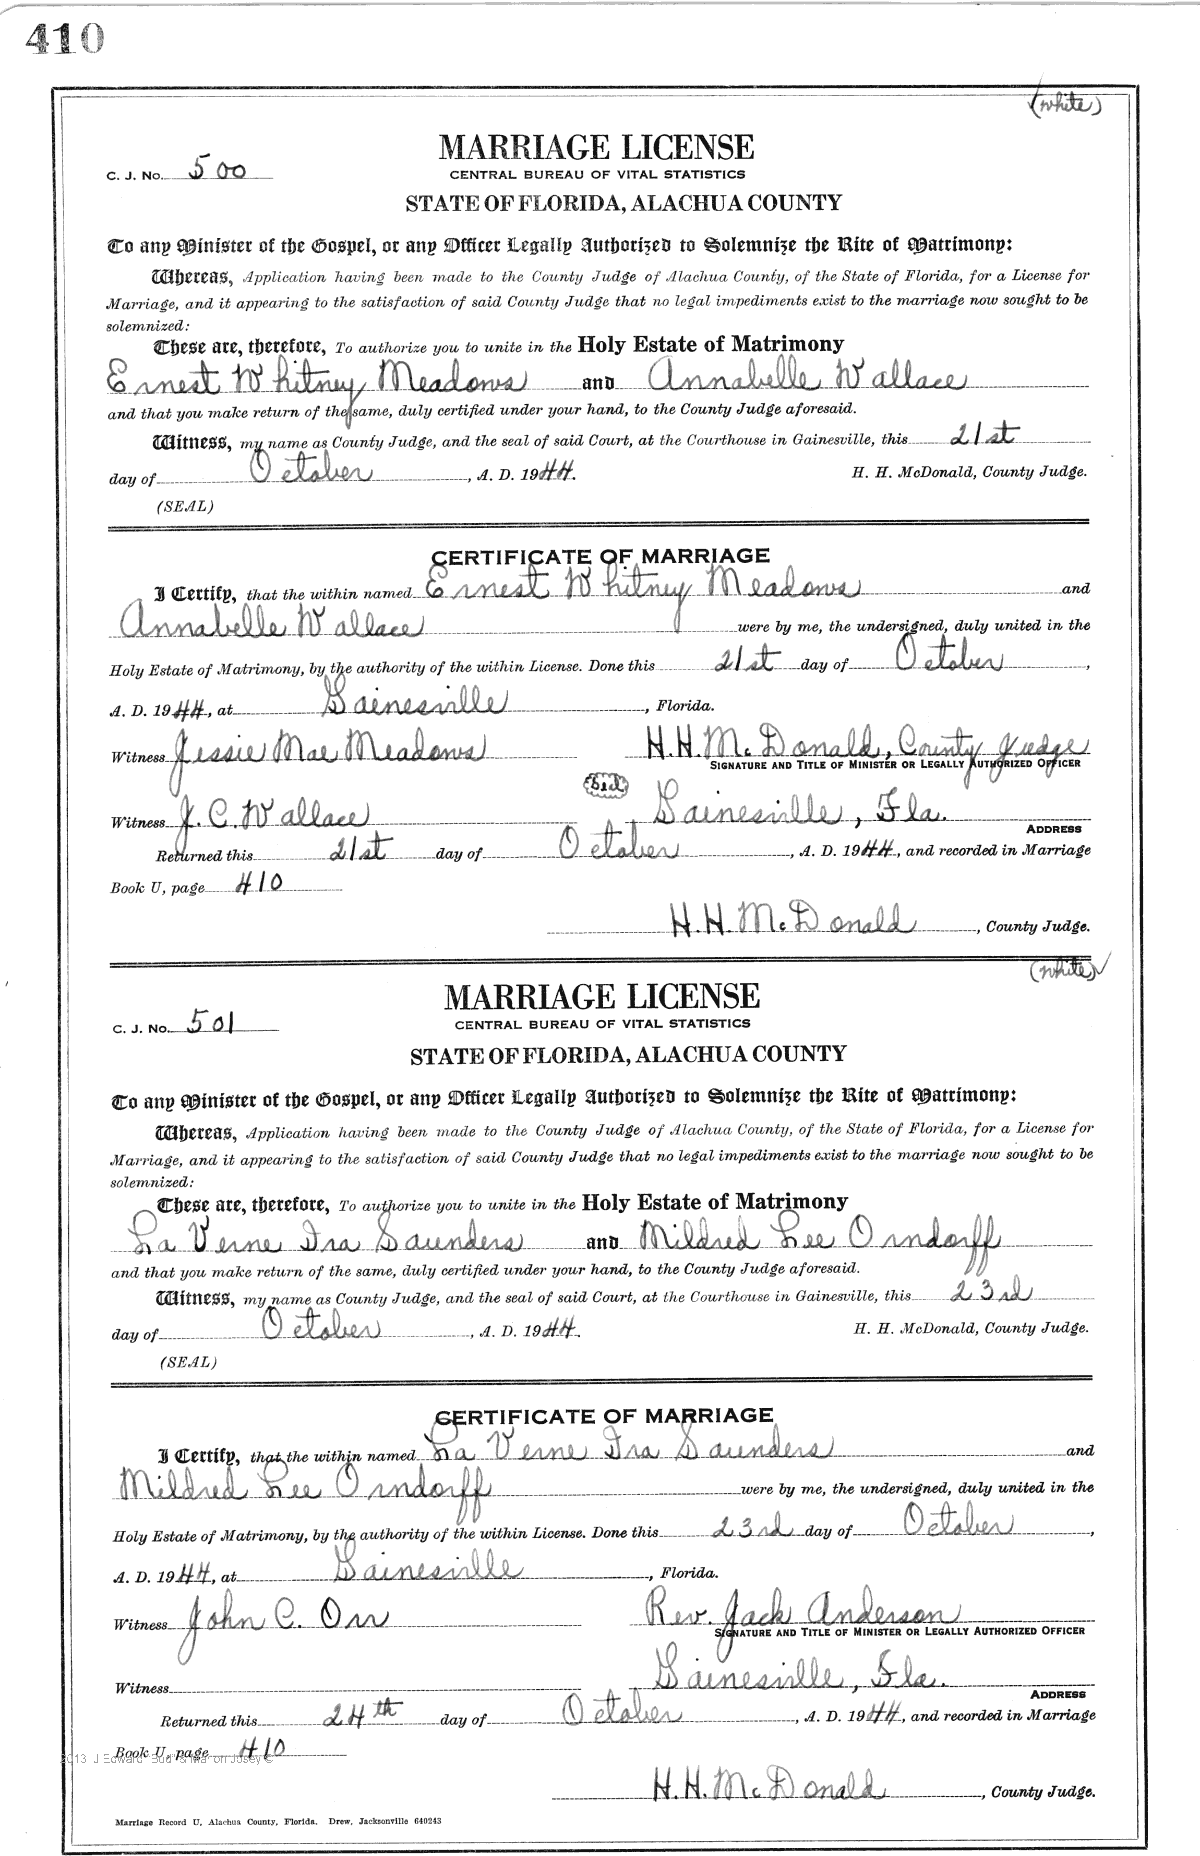 410
(white)
MARRIAGE LICENSE
C. J. No. 500
CENTRAL BUREAU OF VITAL STATISTICS
STATE OF FLORIDA, ALACHUA COUNTY
To any Minister of the Gospel, or any Officer Legally Authorized to Solemnize the Rite of Matrimony:
Whereas, Application having been made to the County Judge of Alachua County, of the State of Florida, for a License for
Marriage, and it appearing to the satisfaction of said County Judge that no legal impediments exist to the marriage now sought to be
solemnized:
These are, therefore, To authorize you to unite in the Holy Estate of Matrimony
Ernest Whitney Meadows and Annabelle Wallace
and that you make return of the same, duly certified under your hand, to the County Judge aforesaid.
Witness, my name as County Judge, and the seal of said Court, at the Courthouse in Gainesville, this 21st
day of October, A. D. 1944. H. H. McDonald, County Judge.
(SEAL)
CERTIFICATE OF MARRIAGE
I Certify, that the within named Ernest Whitney Meadows and
Annabelle Wallace were by me, the undersigned, duly united in the
Holy Estate of Matrimony, by the authority of the within License. Done this 21st day of October,
A. D. 1944, at Gainesville, Florida.
Witness Jessie Mae Meadows H. H. McDonald, County Judge
SIGNATURE AND TITLE OF MINISTER OR LEGALLY AUTHORIZED OFFICER
Witness J. C. Wallace Gainesville, Fla.
ADDRESS
Returned this 21st day of October, A. D. 1944, and recorded in Marriage
Book U, page 410
H. H. McDonald, County Judge.
(white)
MARRIAGE LICENSE
C. J. No. 501
CENTRAL BUREAU OF VITAL STATISTICS
STATE OF FLORIDA, ALACHUA COUNTY
To any Minister of the Gospel, or any Officer Legally Authorized to Solemnize the Rite of Matrimony:
Whereas, Application having been made to the County Judge of Alachua County, of the State of Florida, for a License for
Marriage, and it appearing to the satisfaction of said County Judge that no legal impediments exist to the marriage now sought to be
solemnized:
These are, therefore, To authorize you to unite in the Holy Estate of Matrimony
La Verne Ira Saunders and Mildred Lee Orndorff
and that you make return of the same, duly certified under your hand, to the County Judge aforesaid.
Witness, my name as County Judge, and the seal of said Court, at the Courthouse in Gainesville, this 23rd
day of October, A. D. 1944. H. H. McDonald, County Judge.
(SEAL)
CERTIFICATE OF MARRIAGE
I Certify, that the within named La Verne Ira Saunders and
Mildred Lee Orndorff were by me, the undersigned, duly united in the
Holy Estate of Matrimony, by the authority of the within License. Done this 23rd day of October,
A. D. 1944, at Gainesville, Florida.
Witness John C. Orr Rev. Jack Anderson
SIGNATURE AND TITLE OF MINISTER OR LEGALLY AUTHORIZED OFFICER
Gainesville, Fla.
Witness
ADDRESS
Returned this 24th day of October, A. D. 1944, and recorded in Marriage
Book U, page 410
H. H. McDonald, County Judge.
Marriage Record U, Alachua County, Florida. Drew, Jacksonville 640243